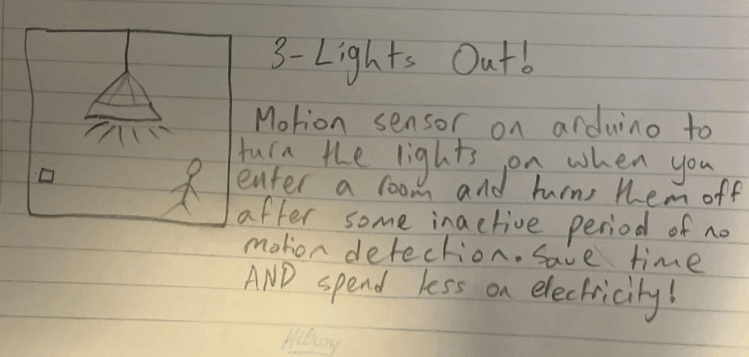 3-Lights Out!
Motion sensor on arduino to
turn the lights on when you
enter a room and turns them off
after some inactive period of no
motion detection. Save time
AND spend less on electricity!